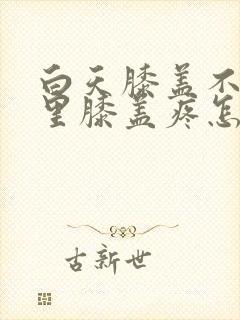 白天膝盖不
里膝盖疼怎
古新世